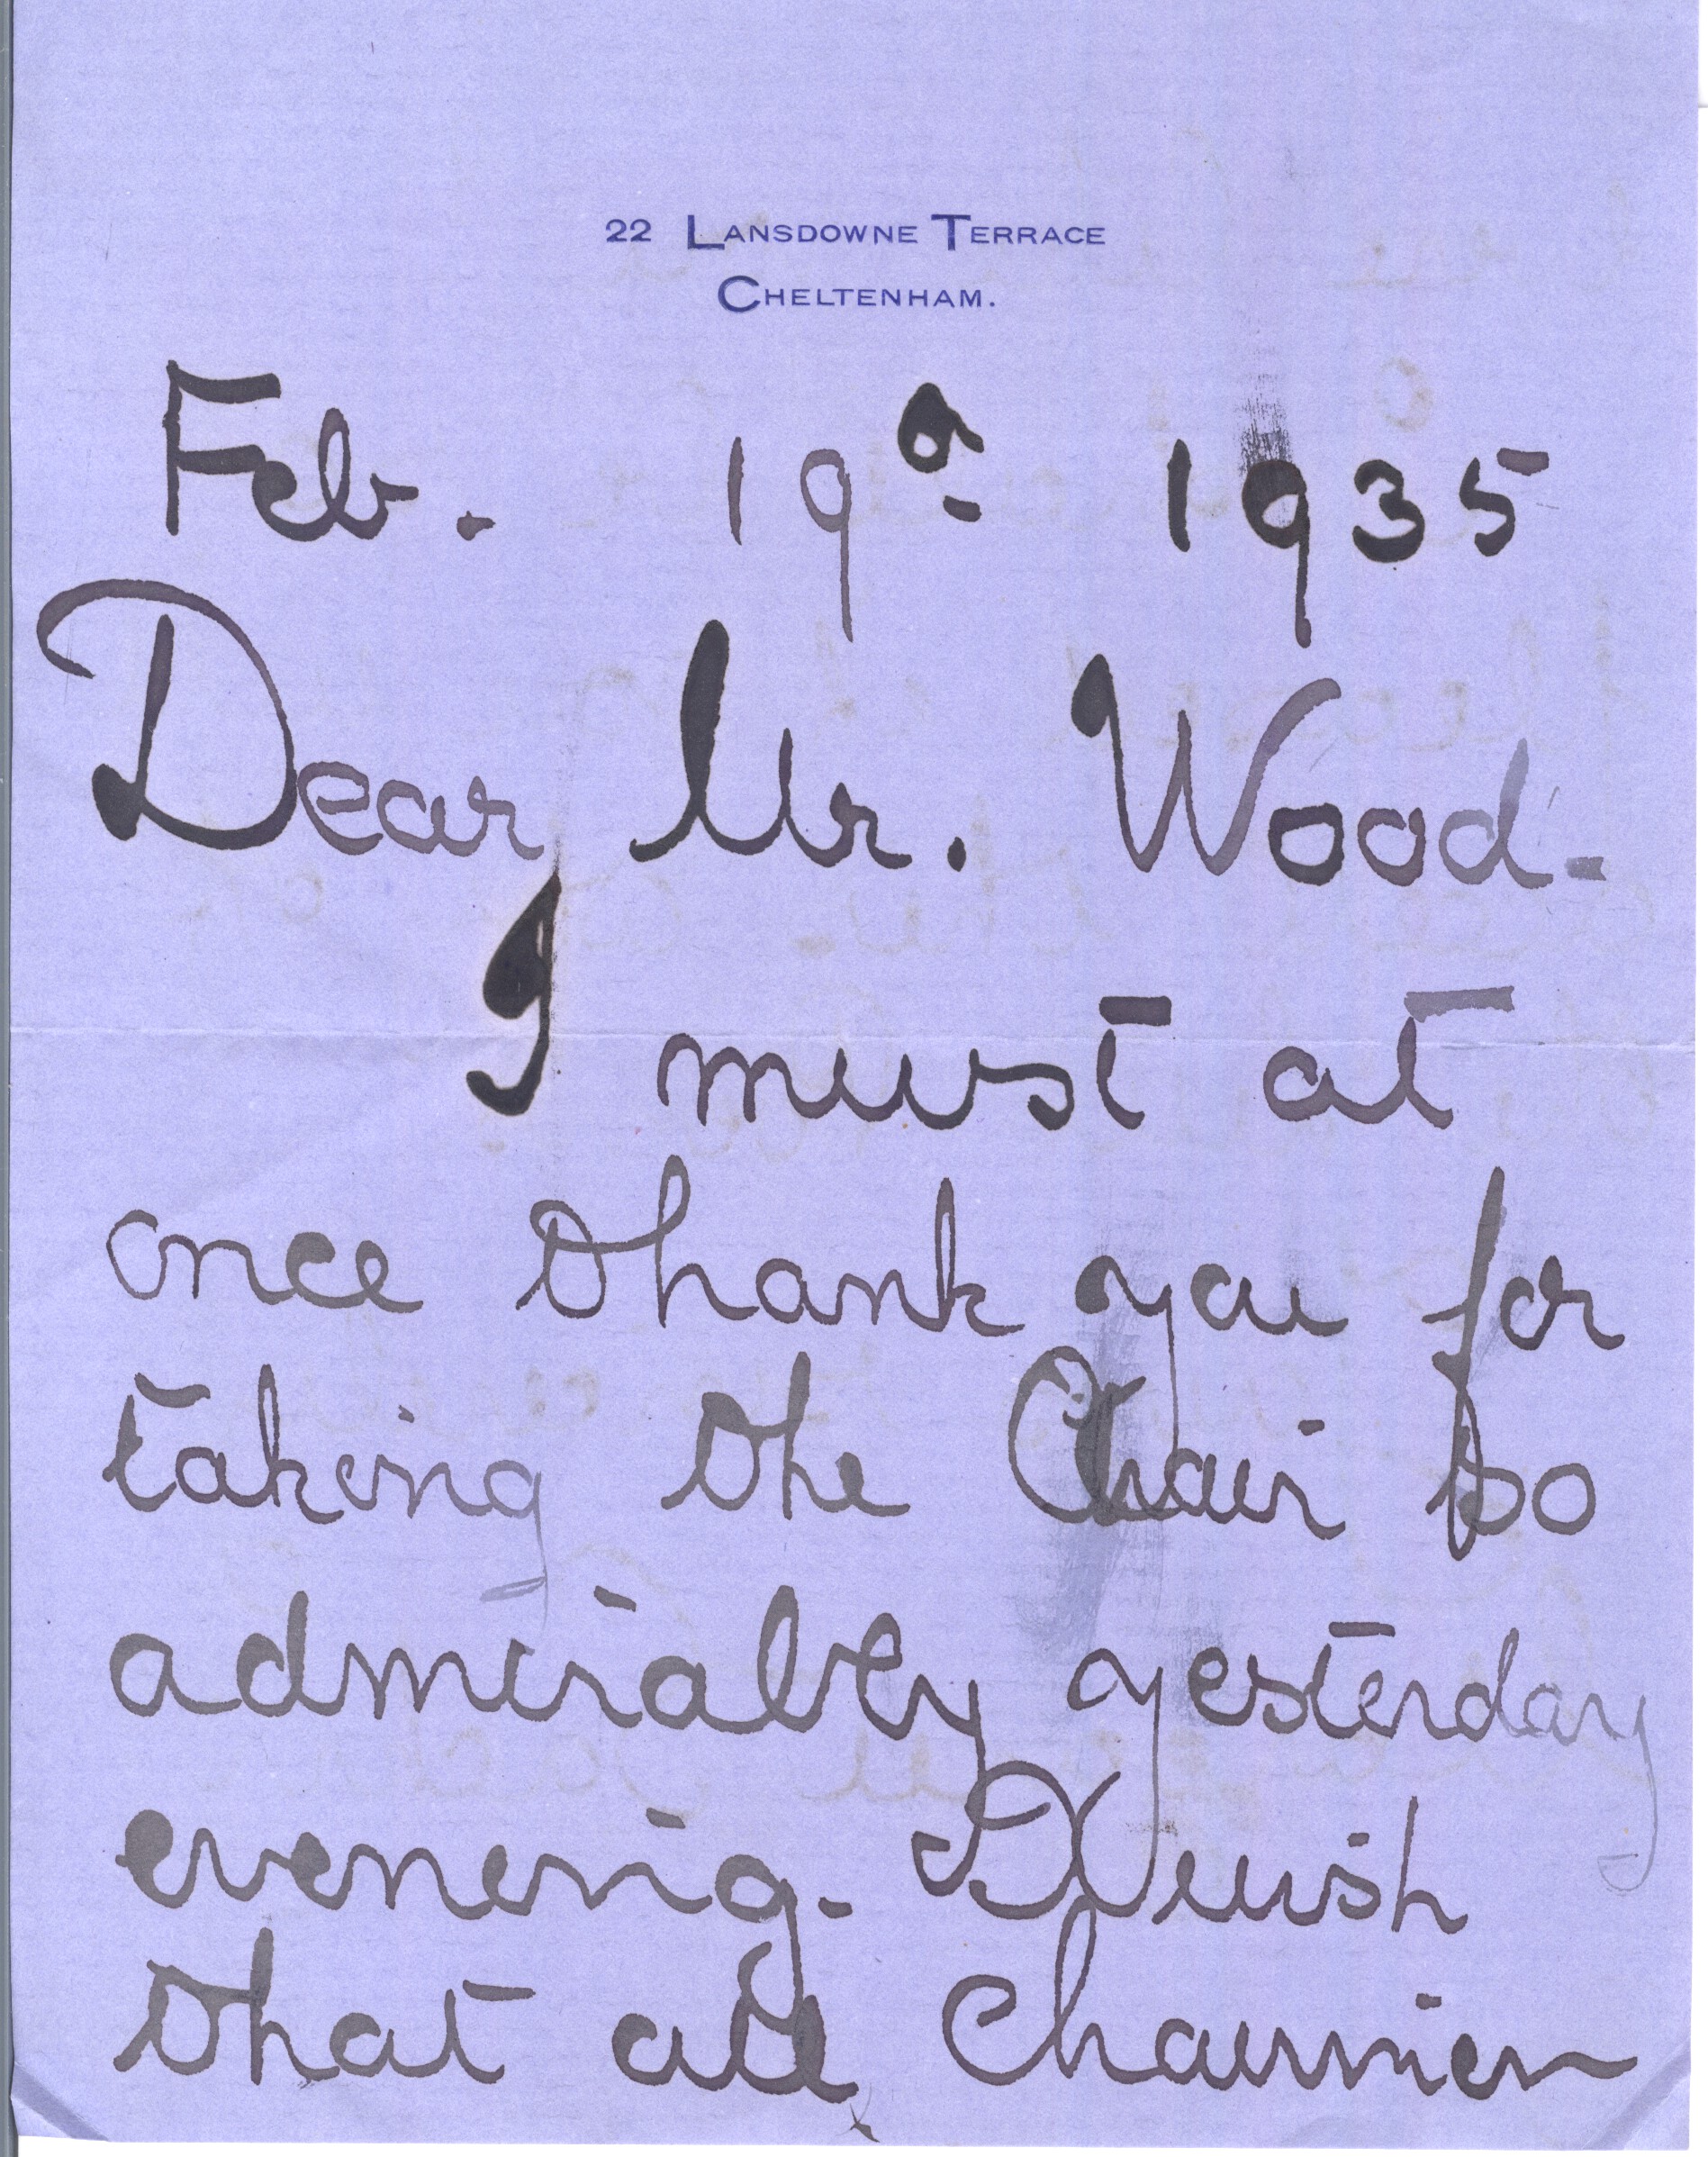 22 LANSDOWNE TERRACE
CHELTENHAM.
Feb. 19 1935
Dear Mr. Wood-
I must at
once thank you for
taking the Chair so
admirably yesterday
evening. I wish
that all chairmen